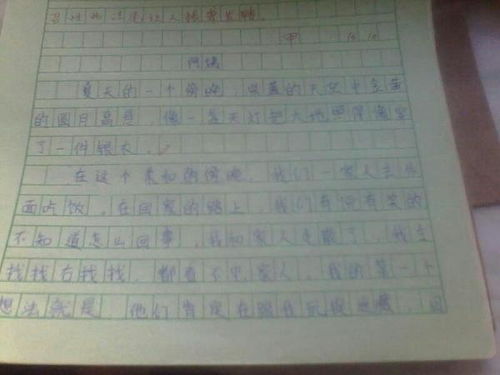 甲
夏天的一个傍晚，蓝蓝的天空中金黄
的圆月高悬，像一盏天灯把大地照得像穿
了一件银衣。
在这个美丽的傍晚，我们一家人去外
面吃饭，在回家的路上，我们有说有笑的
不知道怎么回事，我和家人走散了，我左
找找右找找，都看不见家人，我的第一个
想法就是 他们肯定在跟我玩捉迷藏，因